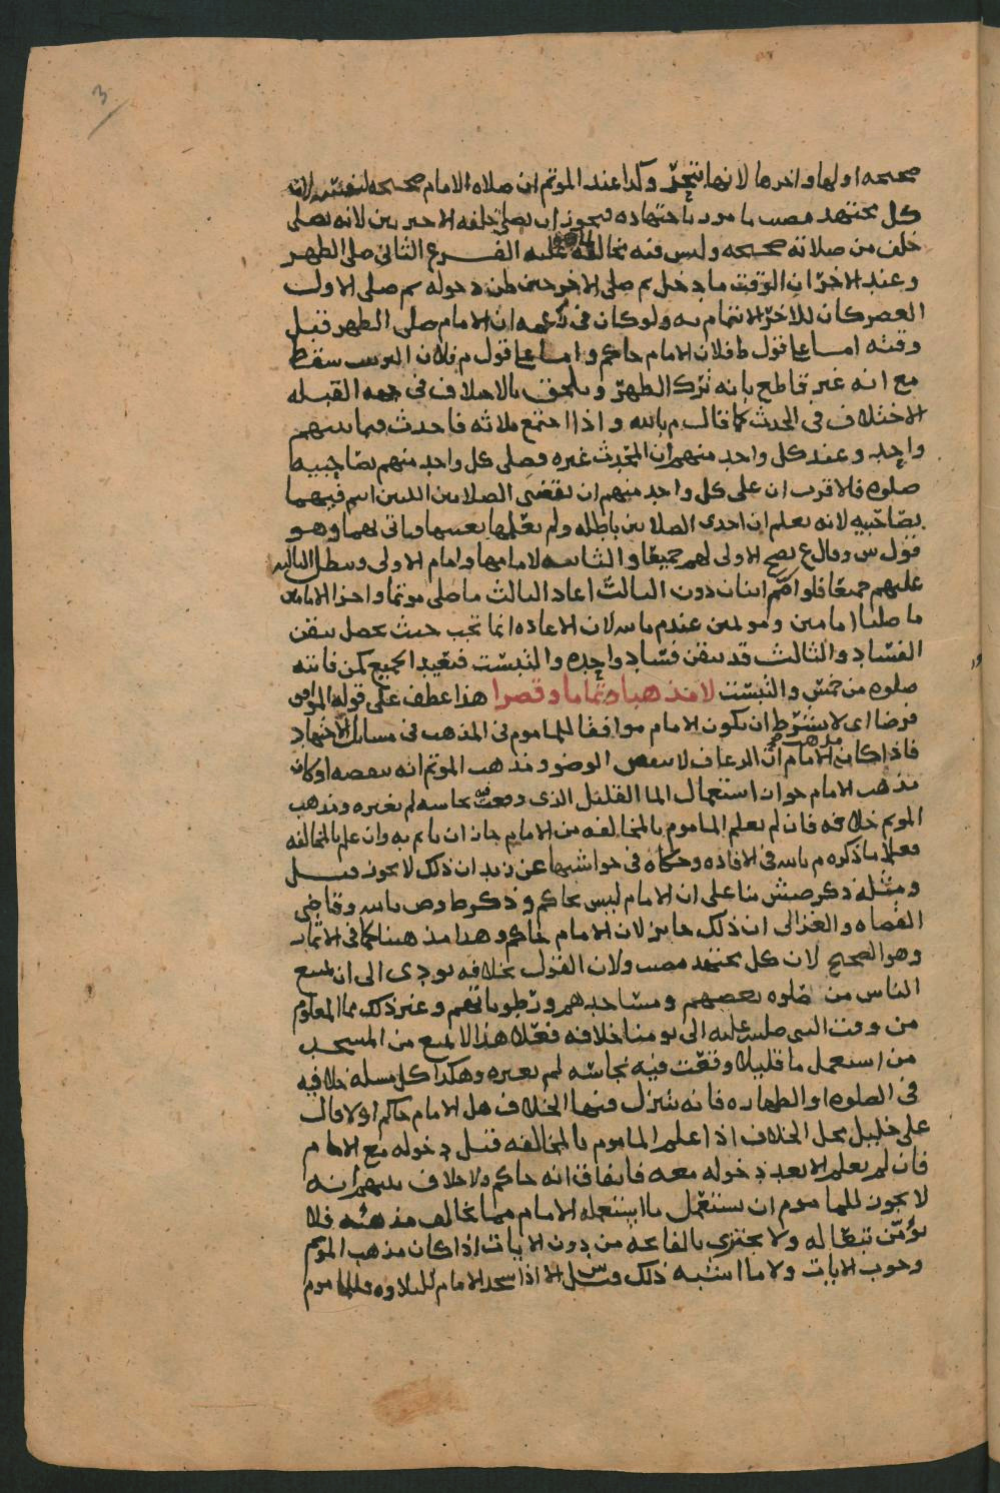 3
صحيحه اولها واخرها لانها تتجزى وكذا عند الموتم ان صلاه الامام صحيحه لنفسه لان
كل مجتهد مصيب مامور باجتهاده فيجوز ان يصلي خلفه الاخير لانه يصلي
خلف من صلاته صحيحه وليس فيه مخالفة عليه الفرع الثاني صلى الظهر
وعند الاخر ان الوقت ما دخل ثم صلى الاخر حين ظن دخوله ثم صلى الاول
العصر كان للاخر الائتمام به ولو كان في زعمه ان الامام صلى الظهر قبل
وقته اما على قول ط فلان الامام حاكم واما على قول م فلان الترتيب سقط
مع انه غير قاطع بانه ترك الظهر ويلحق بالاختلاف في جهه القبله
الاختلاف في الحدث كما قال م بالله واذا اجتمع ثلاثه فاحدث فيما بينهم
واحد وعند كل واحد منهم ان المحدث غيره فصلى كل واحد منهم بصاحبيه
صلوه فالاقرب ان على كل واحد منهم ان يقضي الصلاتين اللتين ائتم فيهما
بصاحبيه لانه يعلم ان احدى الصلاتين باطله ولم يعلمها بعينها فياتي بهما وهو
قول س وقال ع يصح الاولى لهم جميعا والثانيه لامامها وامام الاولى وتبطل الثالثه
عليهم جميعا فلو امهم اثنان دون الثالث اعاد الثالث ما صلى موتما واجزا الامامين
ما صليا امامين ومؤتمين عند م بالله لان الاعاده انما تجب حيث يحصل تيقن
الفساد والثالث قد تيقن فساد واحده والتبست فيعيد الجميع كمن فاتته
صلوه من خمس والتبست لا مذهبا وتماما وقصرا هذا عطف على قوله الموافق
فرضا اي لا يشترط ان يكون الامام موافقا للماموم في المذهب في مسائل الاجتهاد
فاذا كان مذهب الامام ان الرعاف لا ينقض الوضو ومذهب الموتم انه ينقضه او كان
مذهب الامام جواز استعمال الما القليل الذي وقعت فيه نجاسه لم تغيره ومذهب
الموتم خلافه فان لم يعلم الماموم بالمخالفه من الامام جاز ان ياتم به وان علم بالمخالفه
فعلى ما ذكره م بالله في الافاده وحكاه في حواشيها عن زيد ان ذلك لا يجوز قيل
ومثله ذكر صش بنا على ان الامام ليس بحاكم وذكر ط وص بالله وقاضي
القضاه والغزالي ان ذلك جايز لان الامام حاكم وهذا مذهبنا كما في الاثمار
وهو الصحيح لان كل مجتهد مصيب ولان القول بخلافه يودي الى ان يمتنع
الناس من صلوه بعضهم ومساجدهم ورطوباتهم وغير ذلك مما المعلوم
من وقت النبي صلى الله عليه الى يومنا خلافه فعلى هذا لا يمنع من المسجد
من استعمل ما قليلا وقعت فيه نجاسه لم تغيره وهكذا كل مسله خلافيه
في الصلوه او الطهاره فانه يتنزل فيها الخلاف هل الامام حاكم او لا قال
علي خليل محل الخلاف اذا علم الماموم بالمخالفه قبل دخوله مع الامام
فان لم يعلم الا بعد دخوله معه فاتفاق انه حاكم ولا خلاف بينهم انه
لا يجوز للماموم ان يستعمل ما يستعمله الامام مما يخالف مذهبه فلا
يؤمن تبعا له ولا يجتزي بالفاتحه من دون الايات اذا كان مذهب الموتم
وجوب الايات ولا ما اشبه ذلك وقيل س الا اذا سجد الامام للتلاوه فللماموم